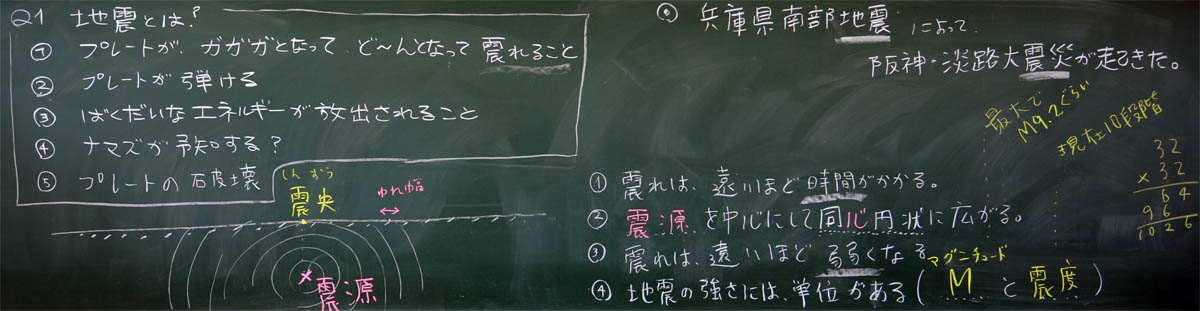 Q1 地震とは?
① プレートが、ガガガとなって、ど〜んとなって震れること
② プレートが弾ける
③ ばくだいなエネルギーが放出されること
④ ナマズが予知する?
⑤ プレートの破壊
しんおう
震央
ゆれ幅
震源
◎ 兵庫県南部地震 によって、
阪神・淡路大震災が起きた。
最大で
M9.2ぐらい
現在10段階
32
×32
64
96
1026
① 震れは、遠いほど時間がかかる。
② 震源を中心にして同心円状に広がる。
③ 震れは、遠いほど弱くなる
マグニチュード
④ 地震の強さには、単位がある(Mと震度)